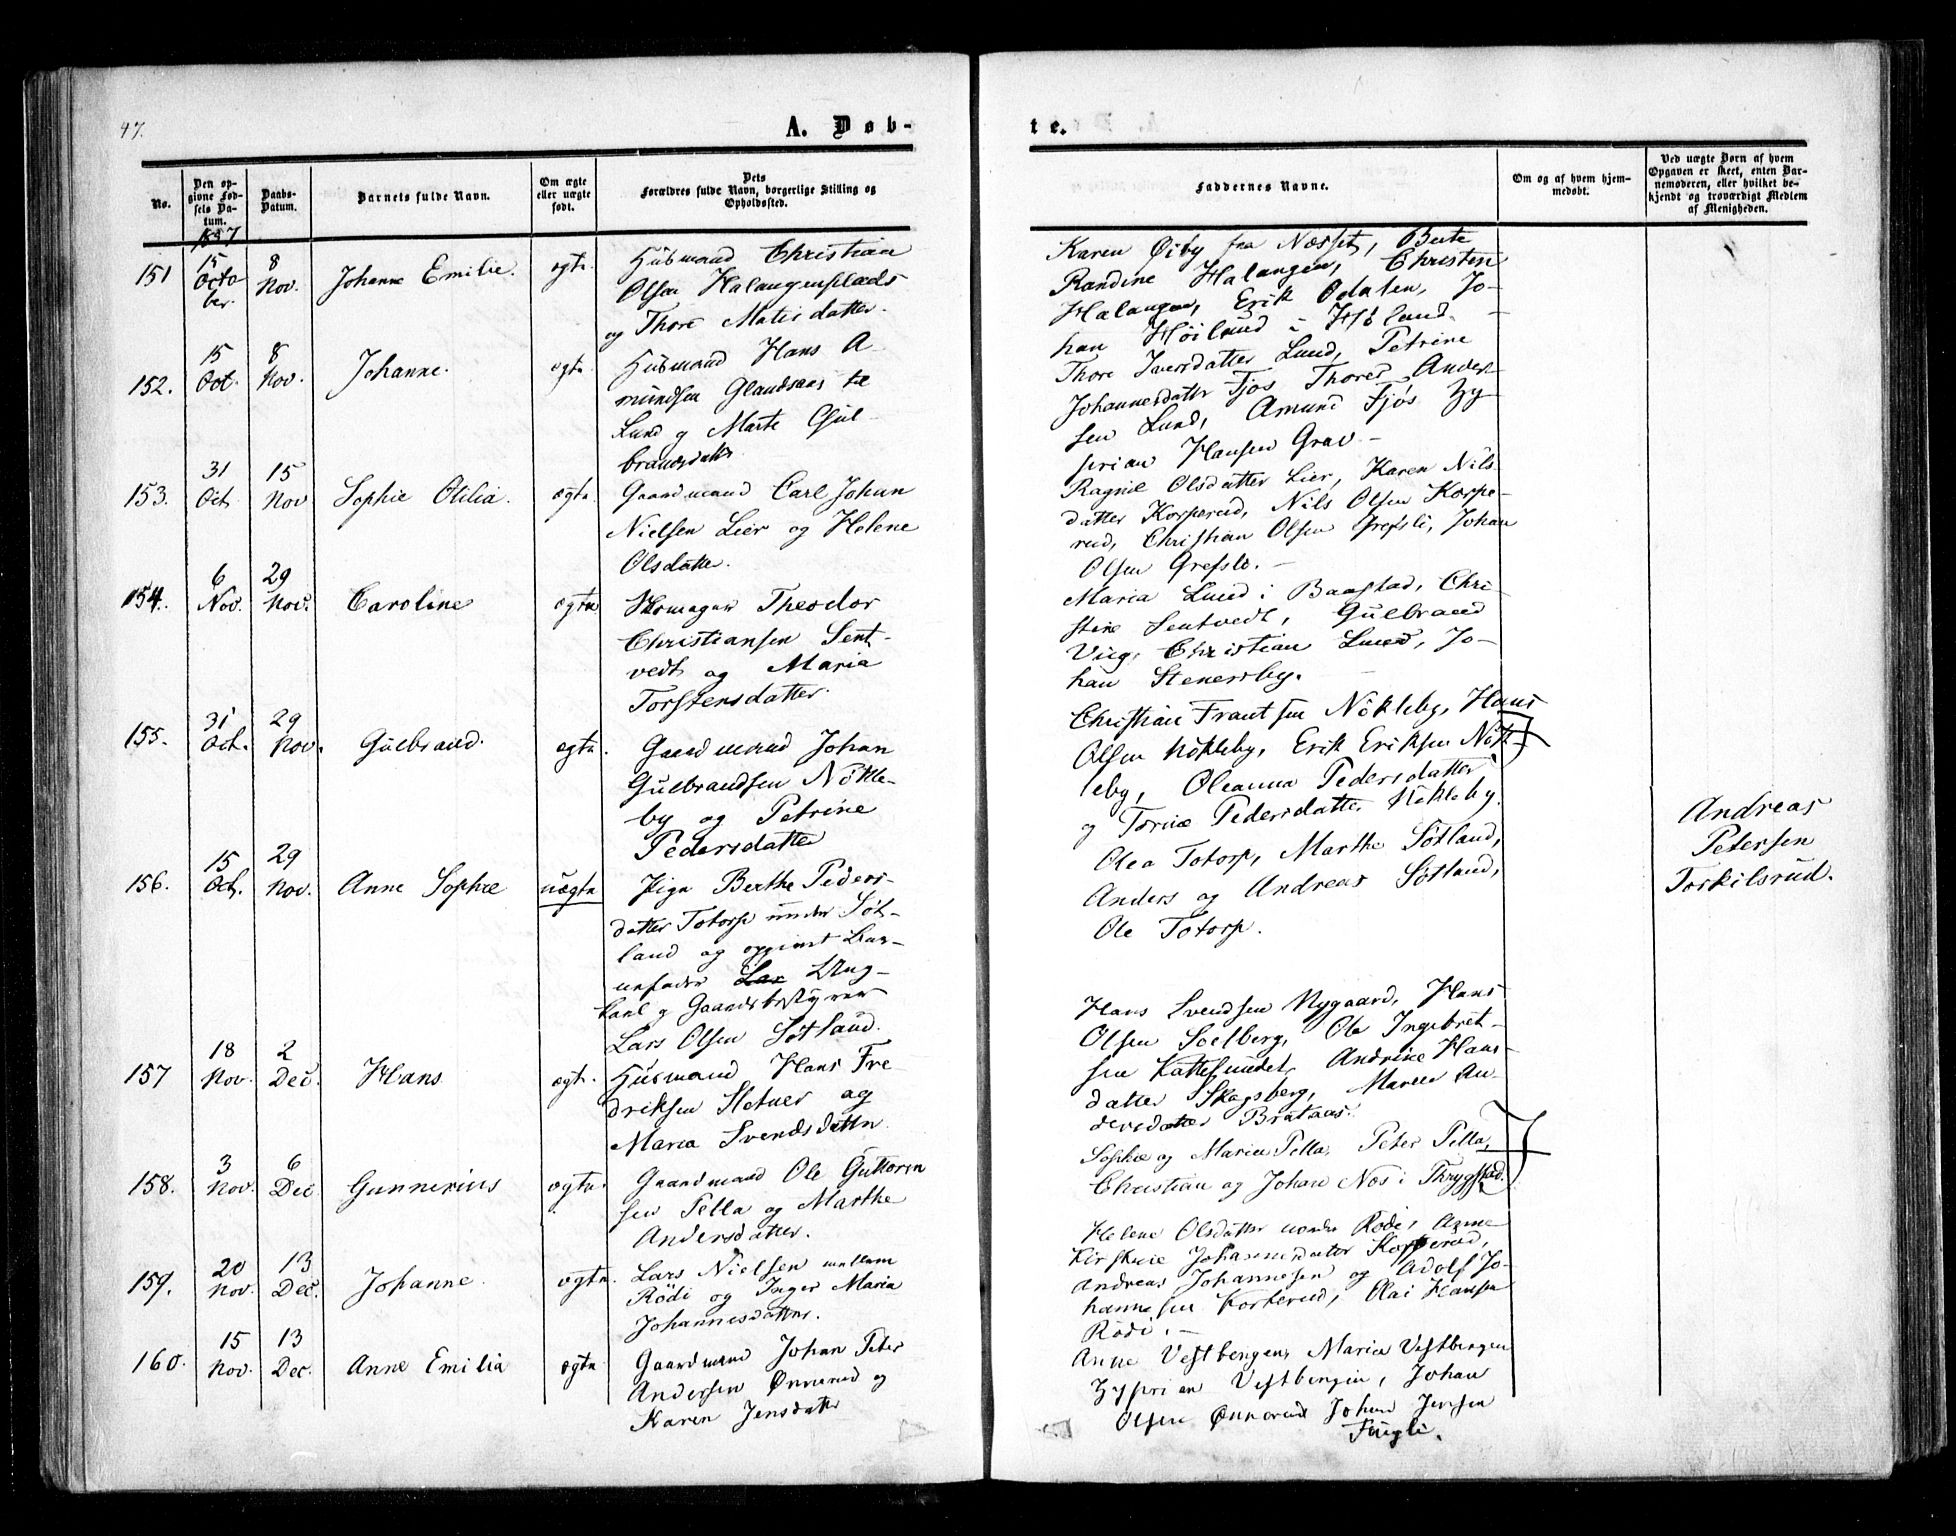 47.
A. Døb-
te.
No.
Den op-
givne Fød-
sels Da-
tum.
Daabs-
Datum.
Barnets fulde Navn.
Om ægte
eller uægte
født.
Dets
Forældres fulde Navn, borgerlige Stilling og
Opholdssted.
Faddernes Navne.
Om og af hvem hjem-
medøbt.
Ved uægte Børn af hvem
Opgaven er skeet, enten Bar-
nemoderen, eller hvilket be-
kjendt og troværdigt Medlem
af Menigheden.
1857
151
15
Octo
ber.
8
Nov.
Johanne Emilie.
ægte.
Husmand Christian
Olsen Halangenplads
og Thore Matisdatter.
Karen Øiby fra Næsset, Berte
Randine Halangen, Christen
Halangen, Erik Odalen, Jo-
han Høiland i Høland.
152.
15
Oct.
8
Nov.
Johanne.
ægte.
Husmand Hans A-
mundsen
Lund og Marte Gul-
brandsdatter
Thore Iversdatter Lund, Petrine
Johannesdatter Fjøs Thores Ander-
sen Lund, Amund Fjøs Zy-
prian Hansen Grav. -
153.
31
Oct.
15
Nov
Sophie Otilia.
ægte.
Gaardmand Carl Johan
Nielsen Lier og Helene
Olsdatter.
Ragnil Olsdatter Lier, Karen Nils
datter Korperud, Nils Olsen Korpe-
rud, Christian Olsen Grefsli, Johan
Olsen Grefsle. -
154.
6
Nov.
29
Nov.
Caroline
ægte
Theodor
Christiansen Sent-
vedt og Maria
Torstensdatter.
Maria Lund i Baastad, Chri-
stine Sentvedt, Gulbrand
Viig, Christian Lund, Jo-
han Stenersby.
155.
31
Oct.
29
Nov.
Gulbrand.
ægte.
Gaardmand Johan
Gulbrandsen Nøkle-
by og Petrine
Pedersdatter
Christian Frantsen Nökleby, Hans
Olsen Nökleby, Erik Eriksen Nök-
leby, Oleanna Pedersdatter
og Torine Pedersdatter Nökleby.
156.
15
Oct.
29
Nov.
Anne Sophie
uægte
Pige Berthe Peders-
datter Totorp under Søt-
land og opgivet Bar-
nefader Lar Ung-
karl og Gaardsbestyrer
Lars Olsen Søtland.
Olea Totorp, Marthe Søtland,
Anders og Andreas Søtland,
Ole Totorp.
Andreas
Petersen
Torkilsrud.
157
18
Nov.
2
Dec.
Hans
ægte.
Husmand Hans Fre-
driksen Sletner og
Maria Svendsdatter
Hans Svendsen Nygaard, Hans
Olsen Soelberg, Ole Ingebret-
sen Kattesundet, Andrine Hans-
datter Skogsberg, Maren An-
dersdatter Brataas.
158.
3
Nov.
6
Dec
Gunnerius
ægte.
Gaardmand Ole Guttorm
sen Pella og Marthe
Andersdatter.
Sophie og Maria Pella, Peter Pella,
Christian og Johan Næs i Thrygstad.
159.
20
Nov.
13
Dec.
Johanne.
ægte.
Lars Nielsen mellem
Rödi og Inger Maria
Johannesdatter.
Helene Olsdatter nordre Rödi, Anne
Kirstine Johannesdatter Korperud,
Andreas Johannesen og Adolf Jo-
hannesen Korperud, Olai Hansen
Rödi. -
160.
15
Nov.
13
Dec.
Anne Emilia
ægte
Gaardmand Johan Peter
Andersen Ønnerud og
Karen Jensdatter
Anne Vestbergen, Maria Vestbergen
Zyprian Vestbergen, Johan
Olsen Ønnerud Johan Jensen
Fugli.